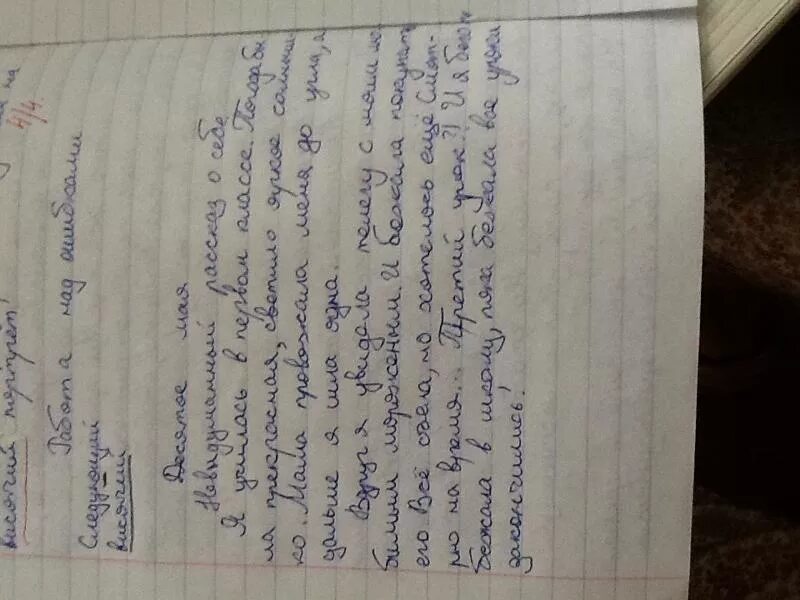 на
4/4.
висячий портрет!
Работа над ошибками
Следующий
висячий
Десятое мая
Невыдуманный рассказ о себе
Я училась в первом классе. Погода бы
ла прекрасная, светило яркое солныш
ко. Мама провожала меня до угла, а
дальше я шла одна.
Вдруг я увидела телегу с моим лю
бимым мороженным. И бежала покупать
его. Всё съела, но хотелось ещё. Смот-
рю на время... Третий урок?! И я
бежала в школу, пока бежала все уроки
закончились!